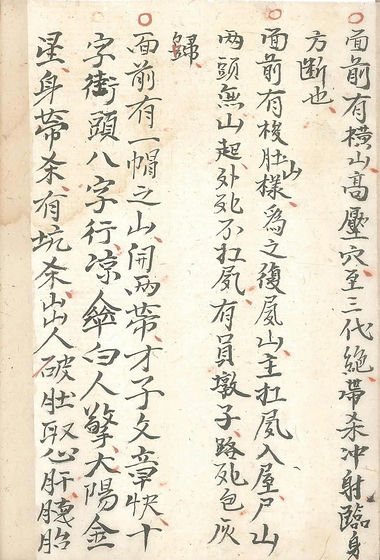 ○面前有橫山高壓穴至三代絕帶杀冲射臨身
方断也
○面前有梭肚山樣為之復屍山主扛屍入屋尸山
两頭無山起外死不扛屍有員墩子路死包灰
歸
○面前有一帽之山開两帶才子文章快十
字街頭八字行凉傘白人擎大陽金
星身帶杀有坑杀出人破肚取心肝膓胎